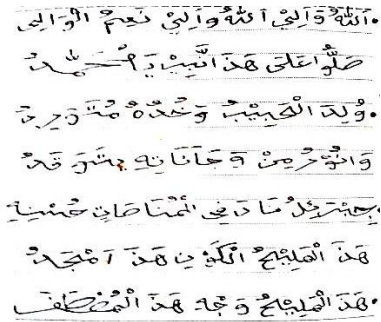 .اَللّٰهُ وَالِيْ اَللّٰهُ وَالِيْ نَعِمُ الْوَالِى
صَلُّوا عَلَى هَذَ النَّبِيْ يَ مُحَمَّدُ
.وُلِدَ الْحَبِيْبُ وَخُدُهُ مُتَوَرِدُ
وَالنُّوْرُ مِنْ وَجَانَاتِهِ يتَوَقَدُ
.جِبْرَئِلُ نَادَ فِى الْمُنَاصَاتِ حُسْنِهِ
هَذَ الْمَلِيْحُ الْكَوْنِ هَذَ اَمْجَدُ
.هَذَ الْمَلِيْحُ وَجْهِ هَذَ الْمُصْطَفَى